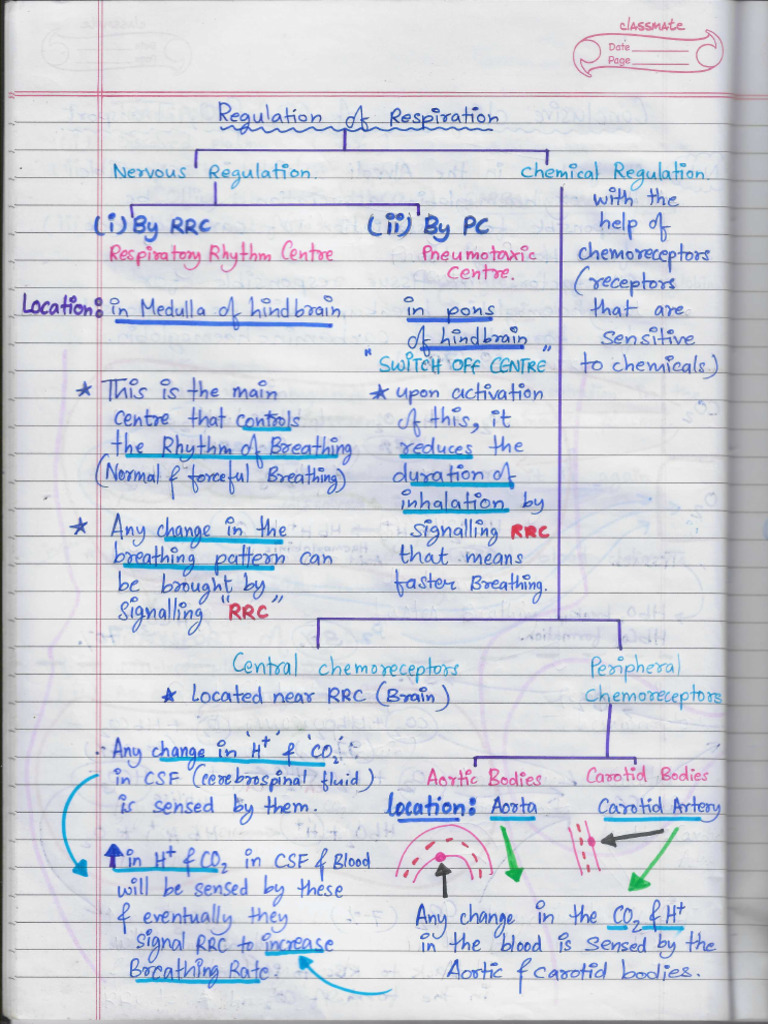 classmate
Date
Page
Regulation of Respiration
Nervous Regulation.
Chemical Regulation.
with the
help of
chemoreceptors
(receptors
that are
sensitive
to chemicals.)
(i) By RRC
Respiratory Rhythm Centre
(ii) By PC
Pneumotaxic
Centre.
Location: in Medulla of hindbrain
in pons
of hindbrain
"SWITCH OFF CENTRE"
★ This is the main
centre that controls
the Rhythm of Breathing
(Normal & forceful Breathing)
★ Any change in the
breathing pattern can
be brought by
signalling "RRC"
★ upon activation
of this, it
reduces the
duration of
inhalation by
signalling RRC
that means
faster Breathing.
Central chemoreceptors
★ Located near RRC (Brain)
Peripheral
Chemoreceptors
Any change in 'H⁺' & 'CO₂'
in CSF (cerebrospinal fluid)
is sensed by them.
↑ in H⁺ & CO₂ in CSF & Blood
will be sensed by these
& eventually they
signal RRC to increase
Breathing Rate.
Aortic Bodies
Carotid Bodies
Location: Aorta
Carotid Artery
Any change in the CO₂ & H⁺
in the blood is sensed by the
Aortic & carotid bodies.